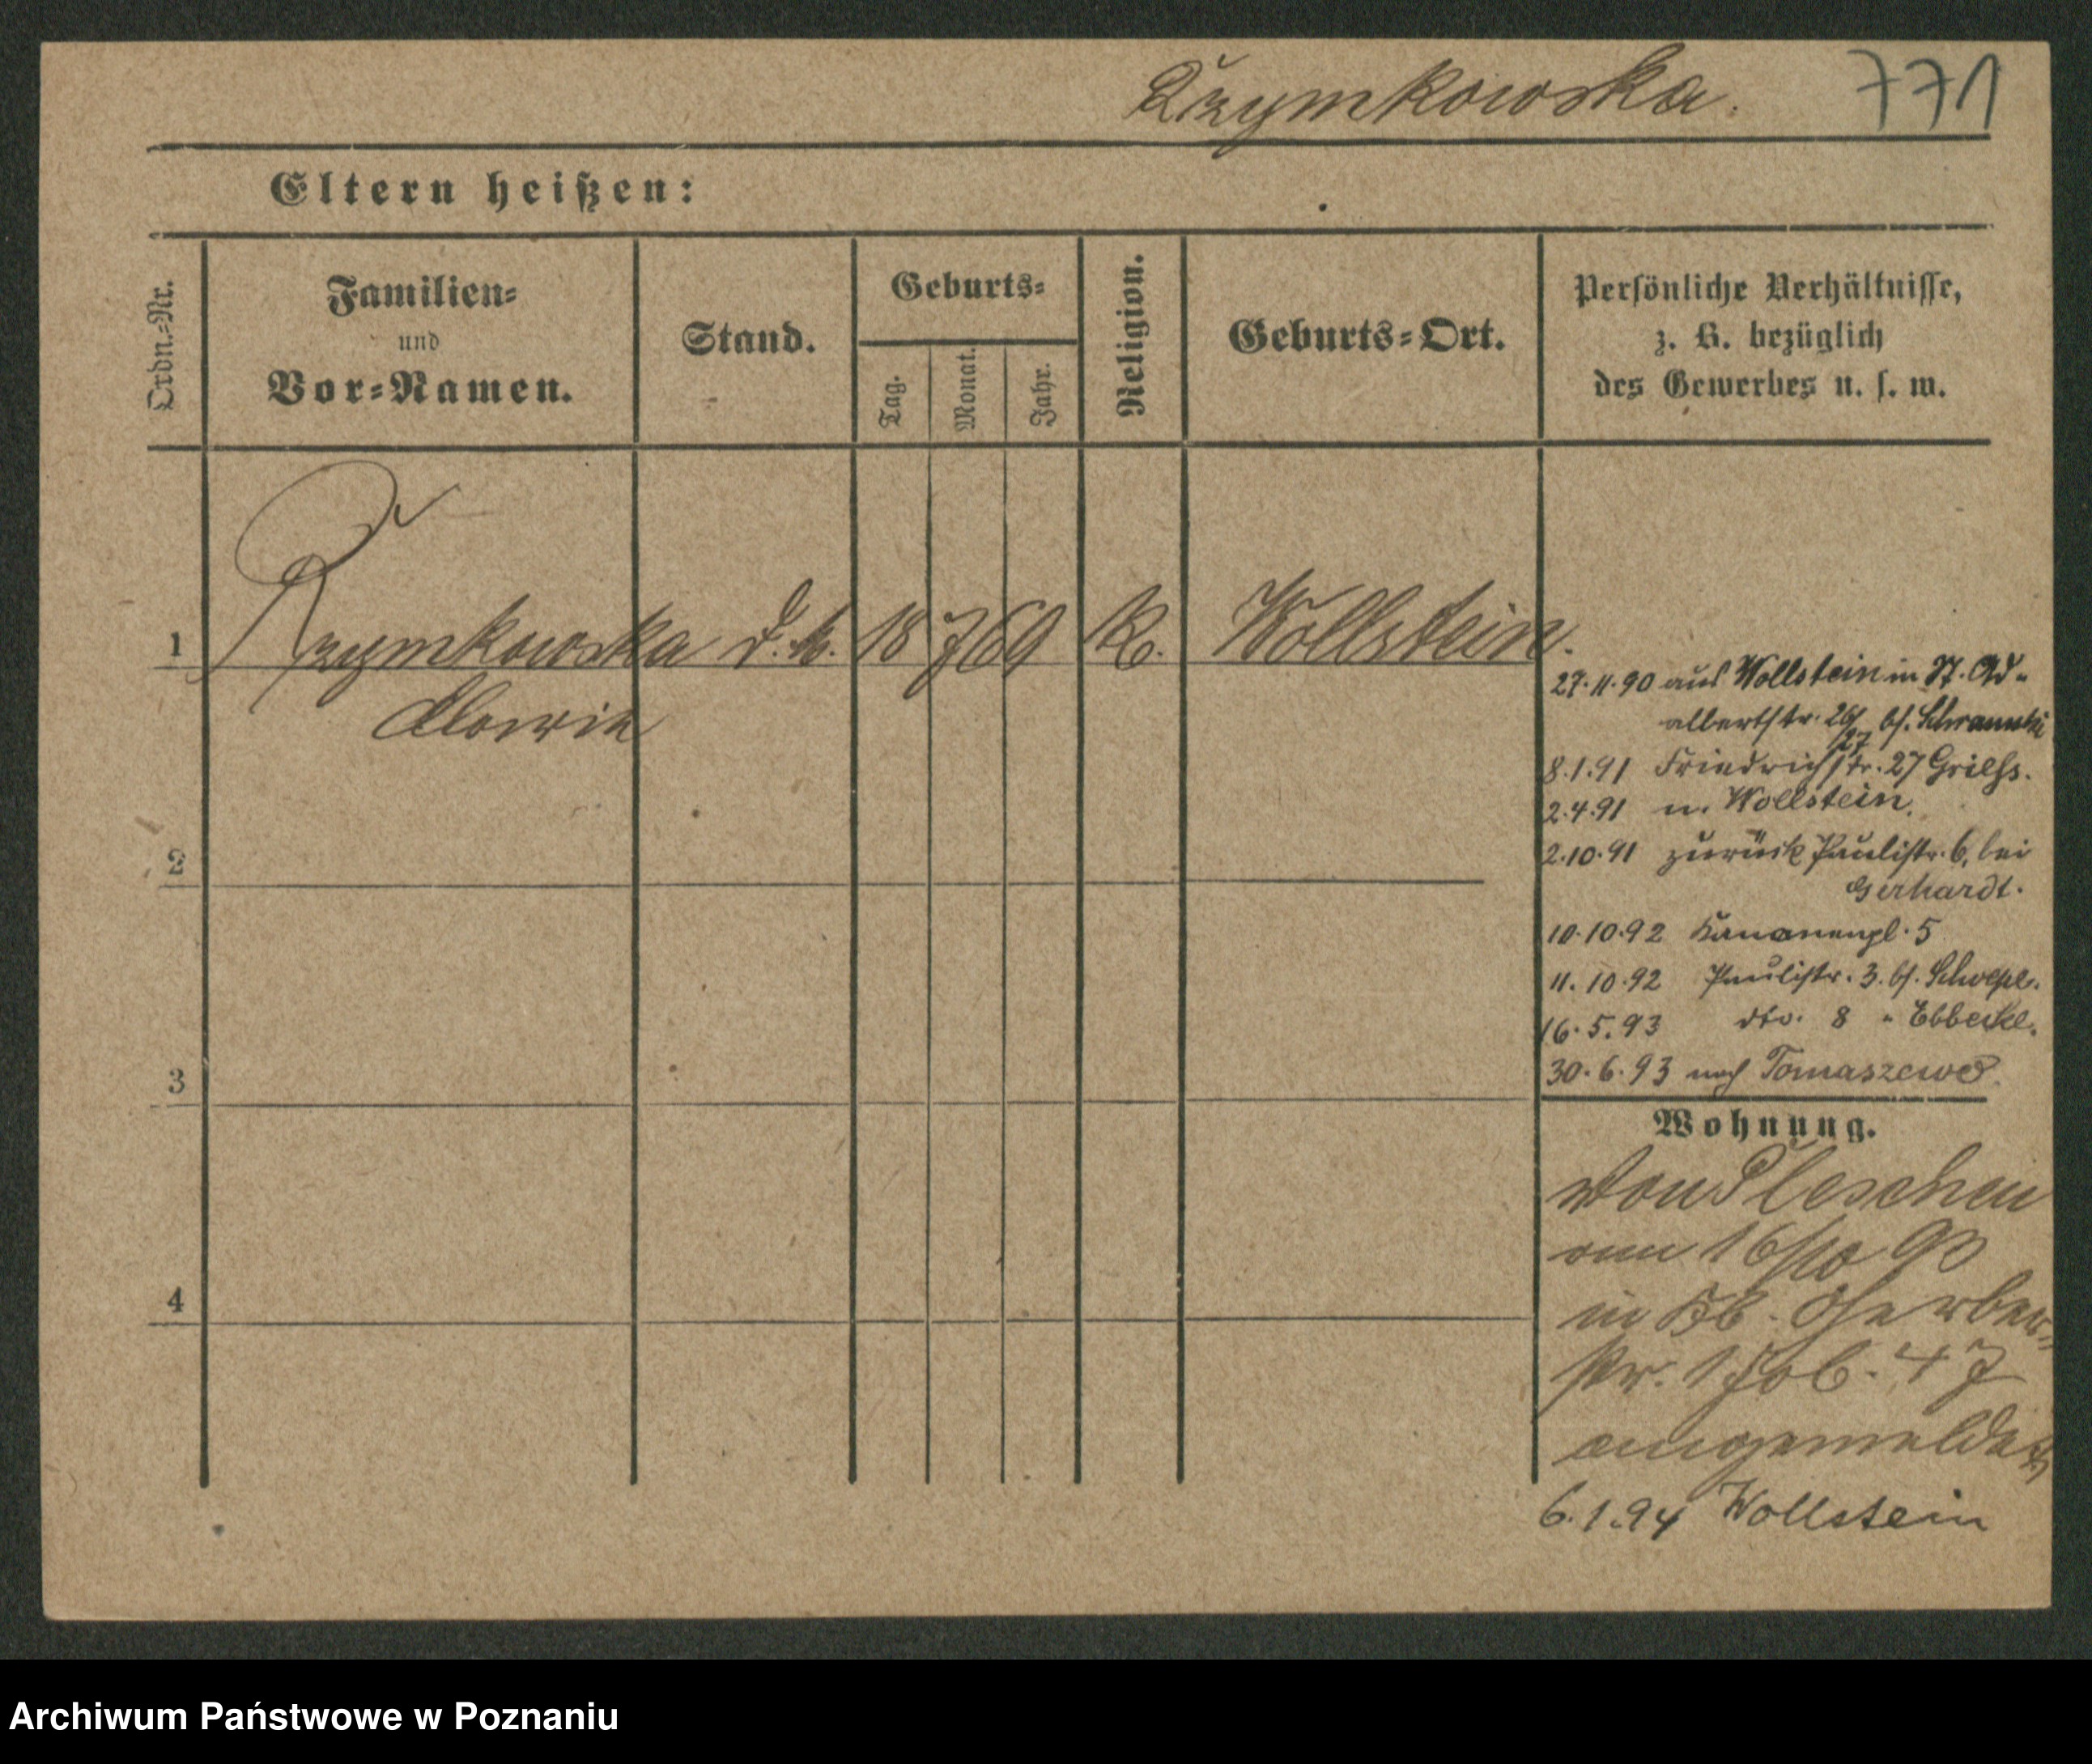 Rzymkowska. 771
Eltern heißen:
Ordn.-Nr.
Familien-
und
Vor-Namen.
Stand.
Geburts-
Tag.
Monat.
Jahr.
Religion.
Geburts-Ort.
Persönliche Verhältnisse,
z. B. bezüglich
des Gewerbes u. s. w.
1 Rzymkowska d. M. 18 7 69 K. Wollstein.
27.11.90 aus Wollstein in St. Ad-
albertstr. 26/27 bei
8.1.91 Friedrichstr. 27
2.4.91 n. Wollstein.
2.10.91 zurück Paulistr. 6, bei
Gerhardt.
10.10.92 Kanonenpl. 5
11.10.92 Paulistr. 3. bei
16.5.93 dto. 8 "
30.6.93 nach Tomaszewo.
2
3
4
Wohnung.
von Pleschen
am 16/10 93
in Gerber-
str.
angemeldet
6.1.94 Wollstein
Archiwum Państwowe w Poznaniu